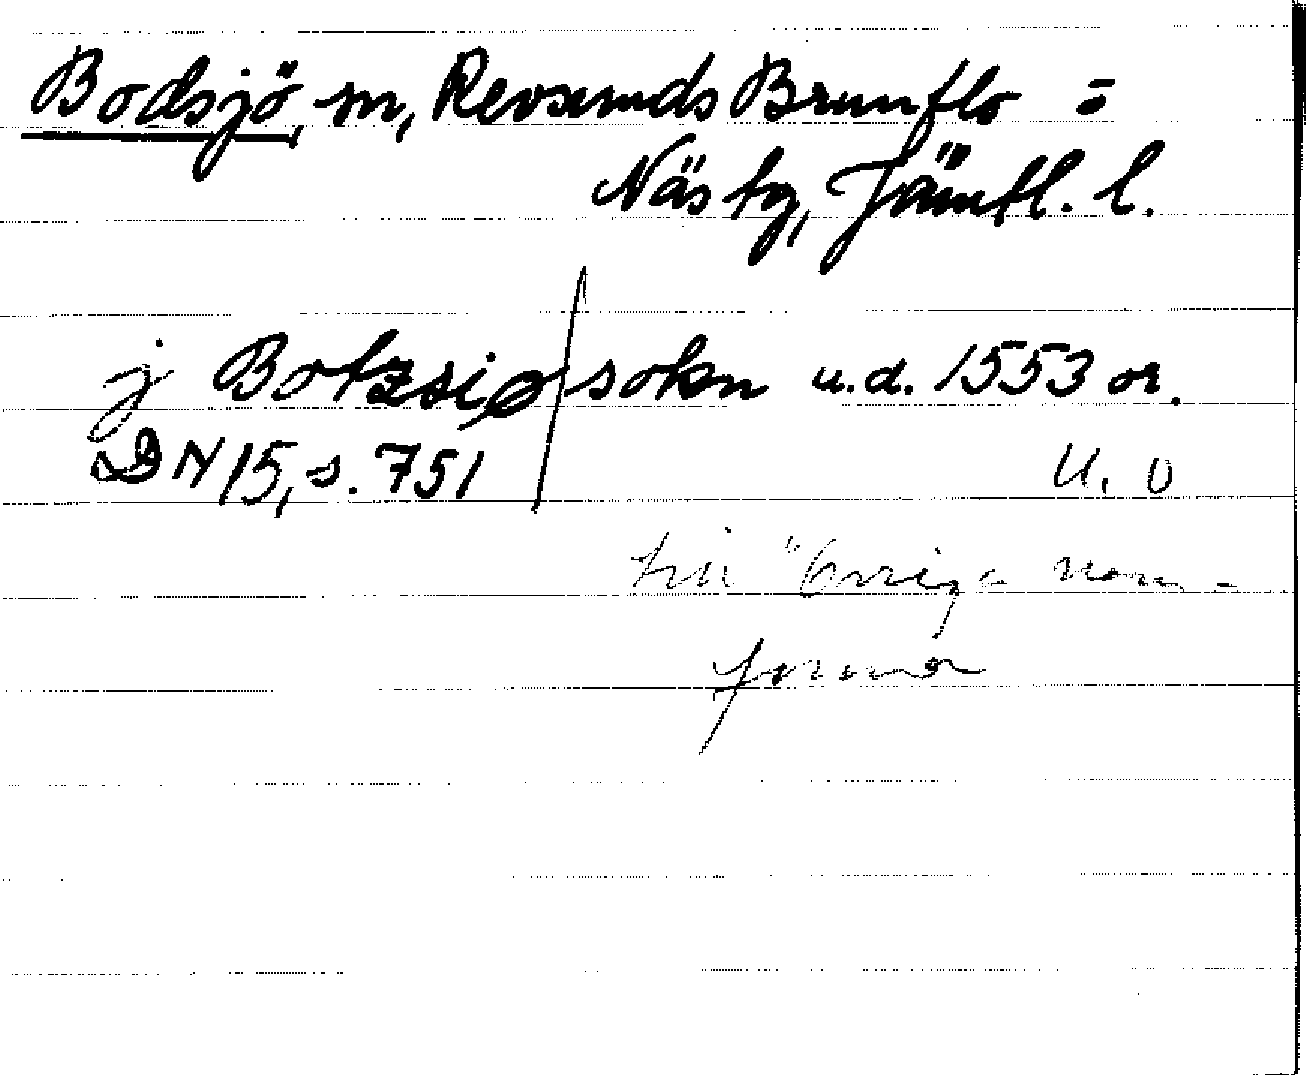 Bodsjö, sn, Revsunds Brunflo =
Näs tg, Jämtl. l.
j Botzsiø/sokn u.d. 1553 or.
DN 15, s. 751
U. O
till övriga namn-
former